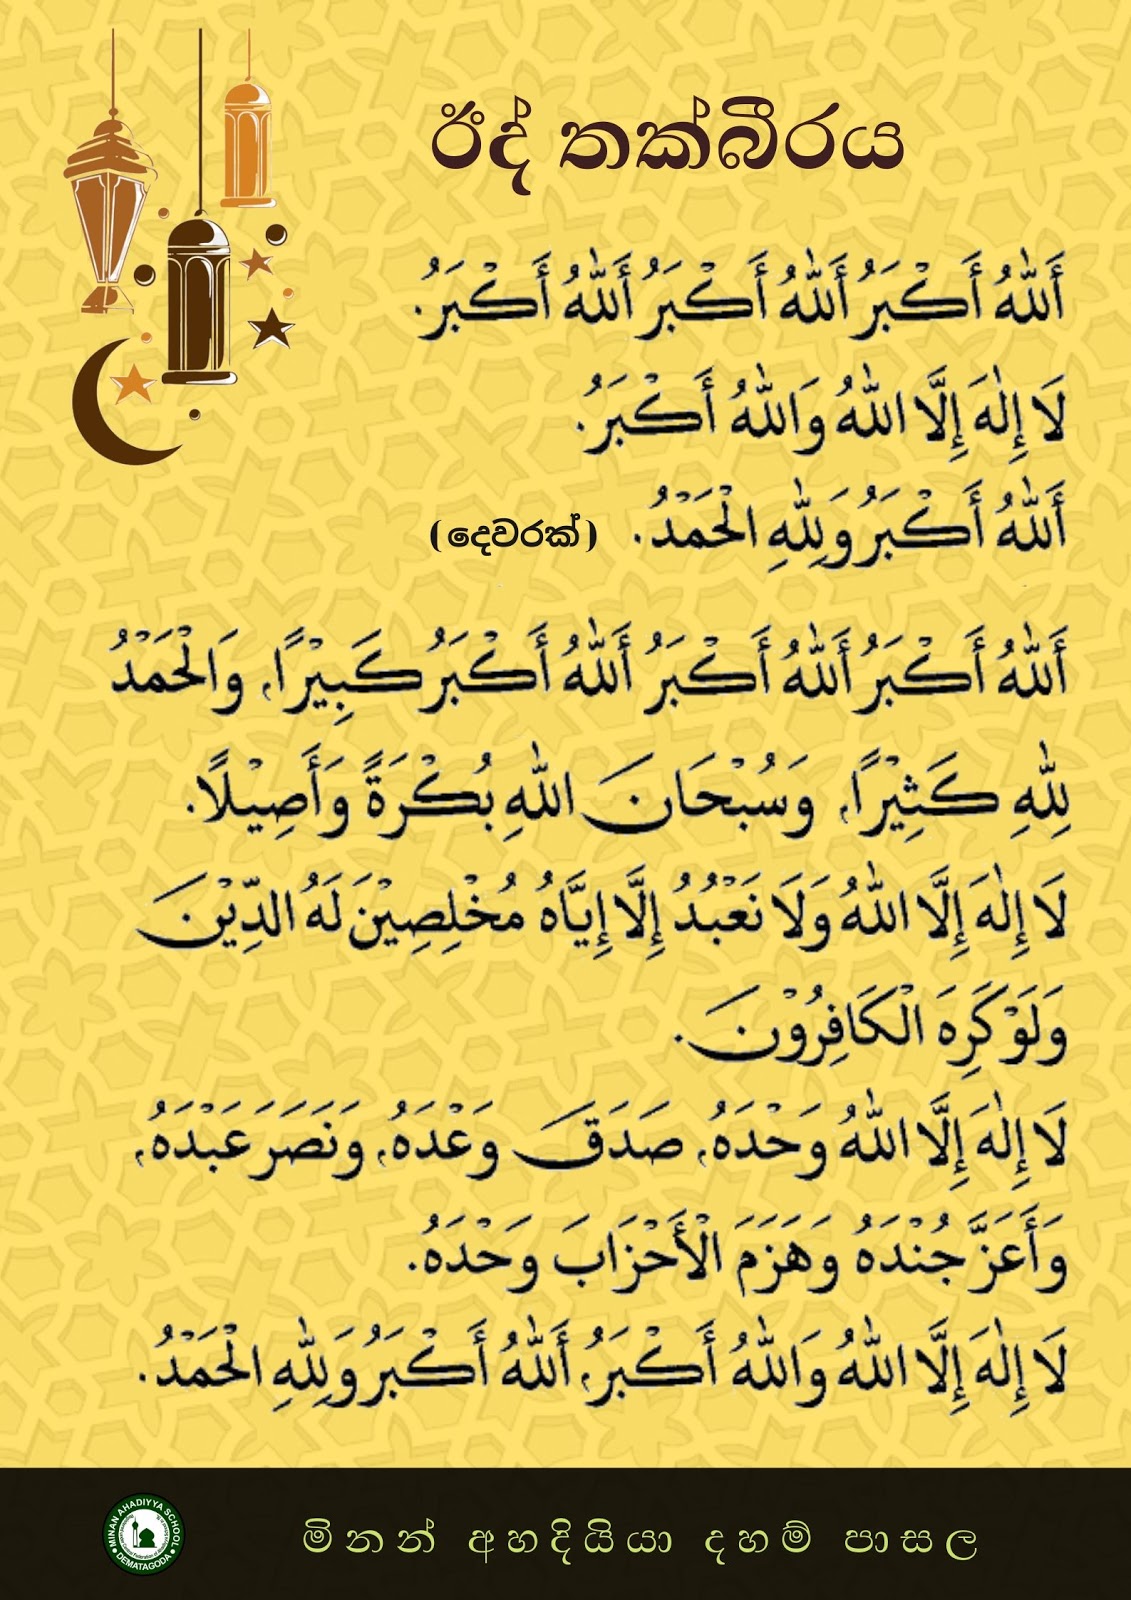 ඊද් තක්බීරය
أَللّٰهُ أَكْبَرُ أَللّٰهُ أَكْبَرُ أَللّٰهُ أَكْبَرُ.
لَا إِلٰهَ إِلَّا اللّٰهُ وَاللّٰهُ أَكْبَرُ.
أَللّٰهُ أَكْبَرُ وَلِلّٰهِ الْحَمْدُ. (දෙවරක්)
أَللّٰهُ أَكْبَرُ أَللّٰهُ أَكْبَرُ أَللّٰهُ أَكْبَرُ كَبِيْرًا، وَالْحَمْدُ
لِلّٰهِ كَثِيْرًا، وَسُبْحَانَ اللّٰهِ بُكْرَةً وَأَصِيْلًا.
لَا إِلٰهَ إِلَّا اللّٰهُ وَلَا نَعْبُدُ إِلَّا إِيَّاهُ مُخْلِصِيْنَ لَهُ الدِّيْنَ
وَلَوْ كَرِهَ الْكَافِرُوْنَ.
لَا إِلٰهَ إِلَّا اللّٰهُ وَحْدَهُ، صَدَقَ وَعْدَهُ، وَنَصَرَ عَبْدَهُ،
وَأَعَزَّ جُنْدَهُ وَهَزَمَ الْأَحْزَابَ وَحْدَهُ.
لَا إِلٰهَ إِلَّا اللّٰهُ وَاللّٰهُ أَكْبَرُ، أَللّٰهُ أَكْبَرُ وَلِلّٰهِ الْحَمْدُ.
MINAN AHADIYYA SCHOOL
DEMATAGODA
මිනන් අහදියියා දහම් පාසල